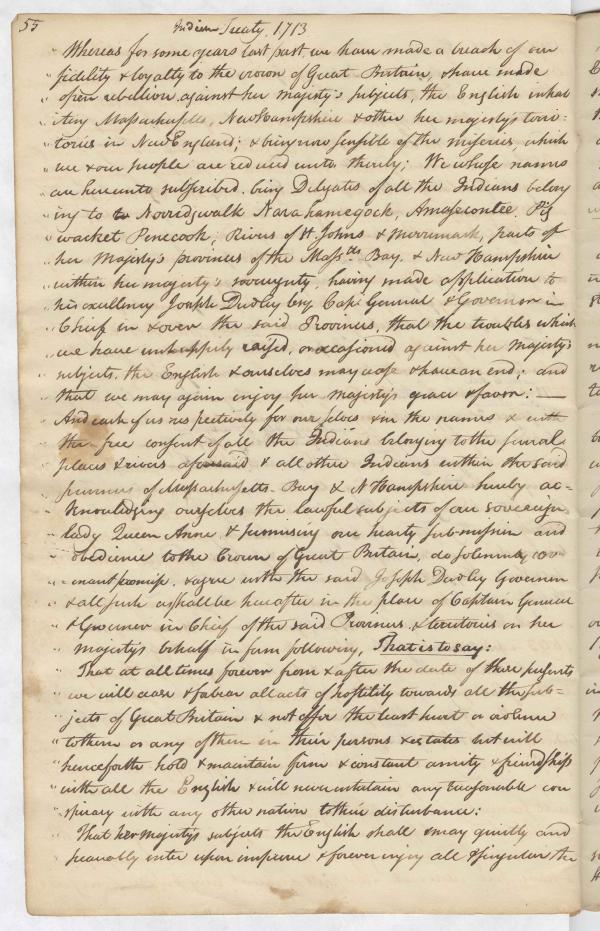 55
Indian Treaty, 1713
" Whereas for some years last past, we have made a breach of our
" fidelity & loyalty to the crown of Great Britain, & have made
" open rebellion against her majesty's subjects, the English inhab
" iting Massachusetts, New Hampshire & other her majesty's terri-
" tories in New England; & being now sensible of the miseries, which
" we & our people are reduced unto thereby; We whose names
" are hereunto subscribed, being Delegates of all the Indians belong
" ing to Norridgwalk Narahamegock, Amasecontee, Pig
" wacket Penecook, Rivers of St. Johns & Merrimack, parts of
" her Majesty's provinces of the Masstts Bay, & New Hampshire
" within her majesty's sovreignty, having made application to
" his excellency Joseph Dudley Esq. Capt. General & Governor in
" Chief in & over the said Provinces, that the troubles which
" we have unhappily raised, or occasioned against her Majesty's
" subjects, the English & ourselves may cease & have an end; and
" that we may again enjoy her Majesty's grace & favor:
" And each of us respectively for ourselves & in the names & with
" the free consent of all the Indians belonging to the several
" places & rivers aforesaid & all other Indians within the said
" provinces of Massachusetts-Bay & N Hampshire hereby ac-
" knowledging ourselves the lawful subjects of our sovereign
" lady Queen Anne, & promising our hearty submission and
" obedience to the Crown of Great Britain, do solemnly cov
" enant promise, & agree with the said Joseph Dudley Governor
" & all such as shall be hereafter in the place of Captain General
" & Governor in Chief of the said Provinces, & territories on her
" majesty's behalf in form following, That is to say:
" That at all times forever from & after the date of these presents
" we will cease & forbear all acts of hostility towards all the sub-
" jects of Great Britain & not offer the least hurt or violence
" to them or any of them in their persons & estates but will
" henceforth hold & maintain firm & constant amity & friendship
" with all the English & will never entertain any treasonable con
" spiracy with any other nation to their disturbance:
" That her Majesty's subjects the English shall & may quietly and
" peaceably enter upon improve & forever enjoy all & singular the